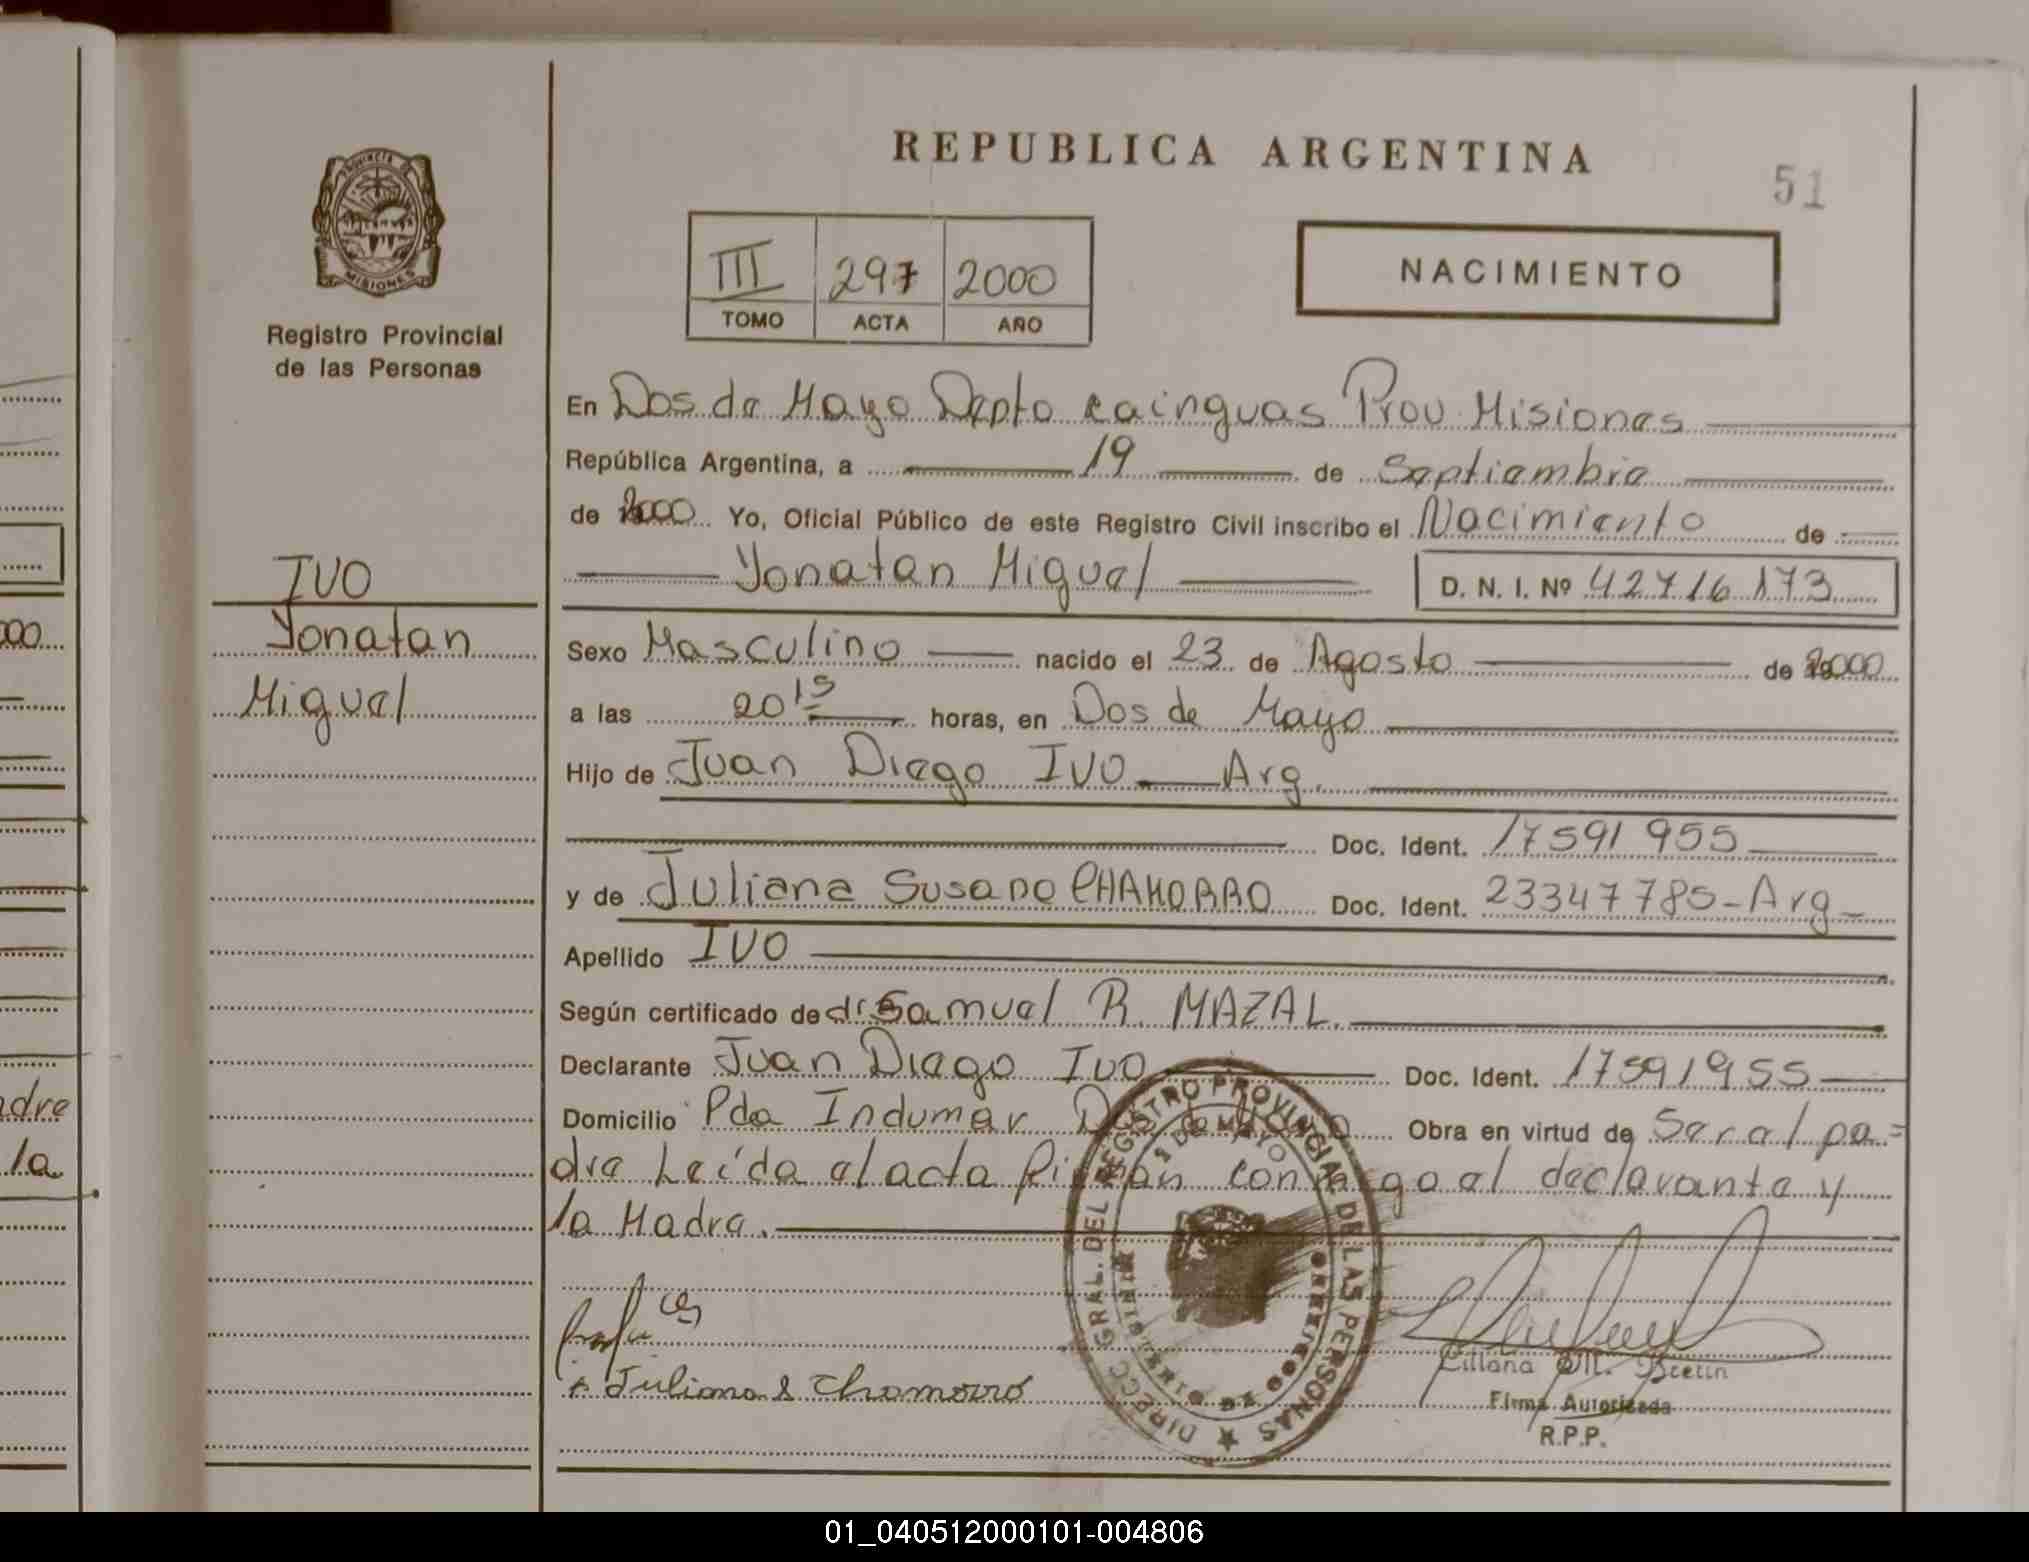 REPUBLICA ARGENTINA
51
PROVINCIA DE
MISIONES
Registro Provincial
de las Personas
III 297 2000
TOMO ACTA AÑO
NACIMIENTO
En Dos de Mayo Depto cainguas Prov. Misiones
República Argentina, a 19 de Septiembre
de 2000 Yo, Oficial Público de este Registro Civil inscribo el Nacimiento de
Yonatan Miguel D. N. I. Nº 42716173
IVO
Yonatan
Miguel
Sexo Masculino nacido el 23 de Agosto de 2000
a las 20 15 horas, en Dos de Mayo
Hijo de Juan Diego IVO Arg.
Doc. Ident. 17591955
y de Juliana Susana CHAMORRO Doc. Ident. 23347785-Arg-
Apellido IVO
Según certificado de dr Samuel R. MAZAL.
Declarante Juan Diego IVO Doc. Ident. 17591955
Domicilio Pda Indumar Dos de Mayo Obra en virtud de Ser al pa=
dre Leída el acta firman conmigo el declarante y
la Madre.
DIRECC. GRAL. DEL REGISTRO PROVINCIAL DE LAS PERSONAS
2 DE MAYO
MINISTERIO DE GOBIERNO
Juliana S Chamorro
Liliana
Firma Autorizada
R.P.P.
000
000
adre
la
01_040512000101-004806